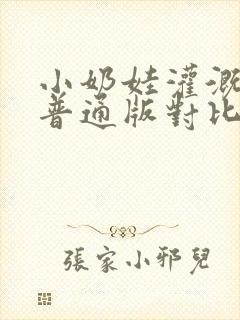 小奶娃灌溉
普通版對比
張家小邪兒